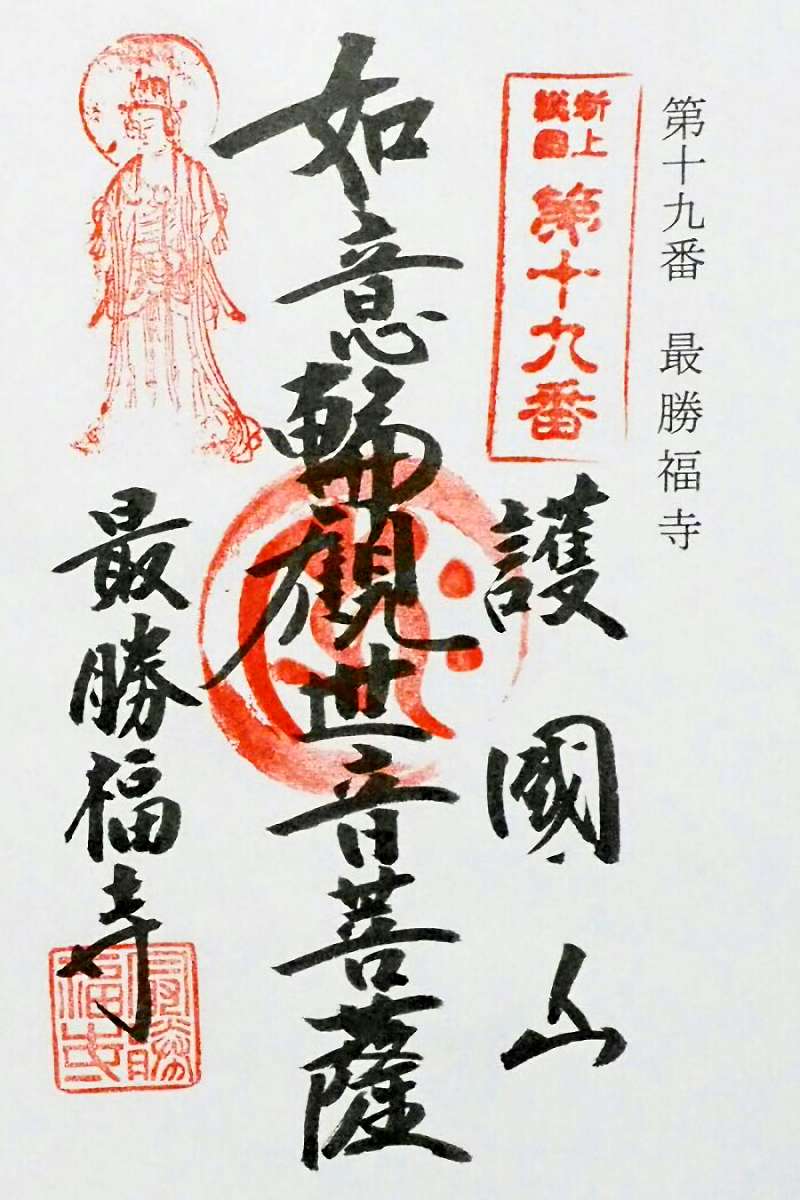 第十九番　最勝福寺
新上
護國
第十九番
護國山
如意輪觀世音菩薩
最勝福寺
最勝
福寺